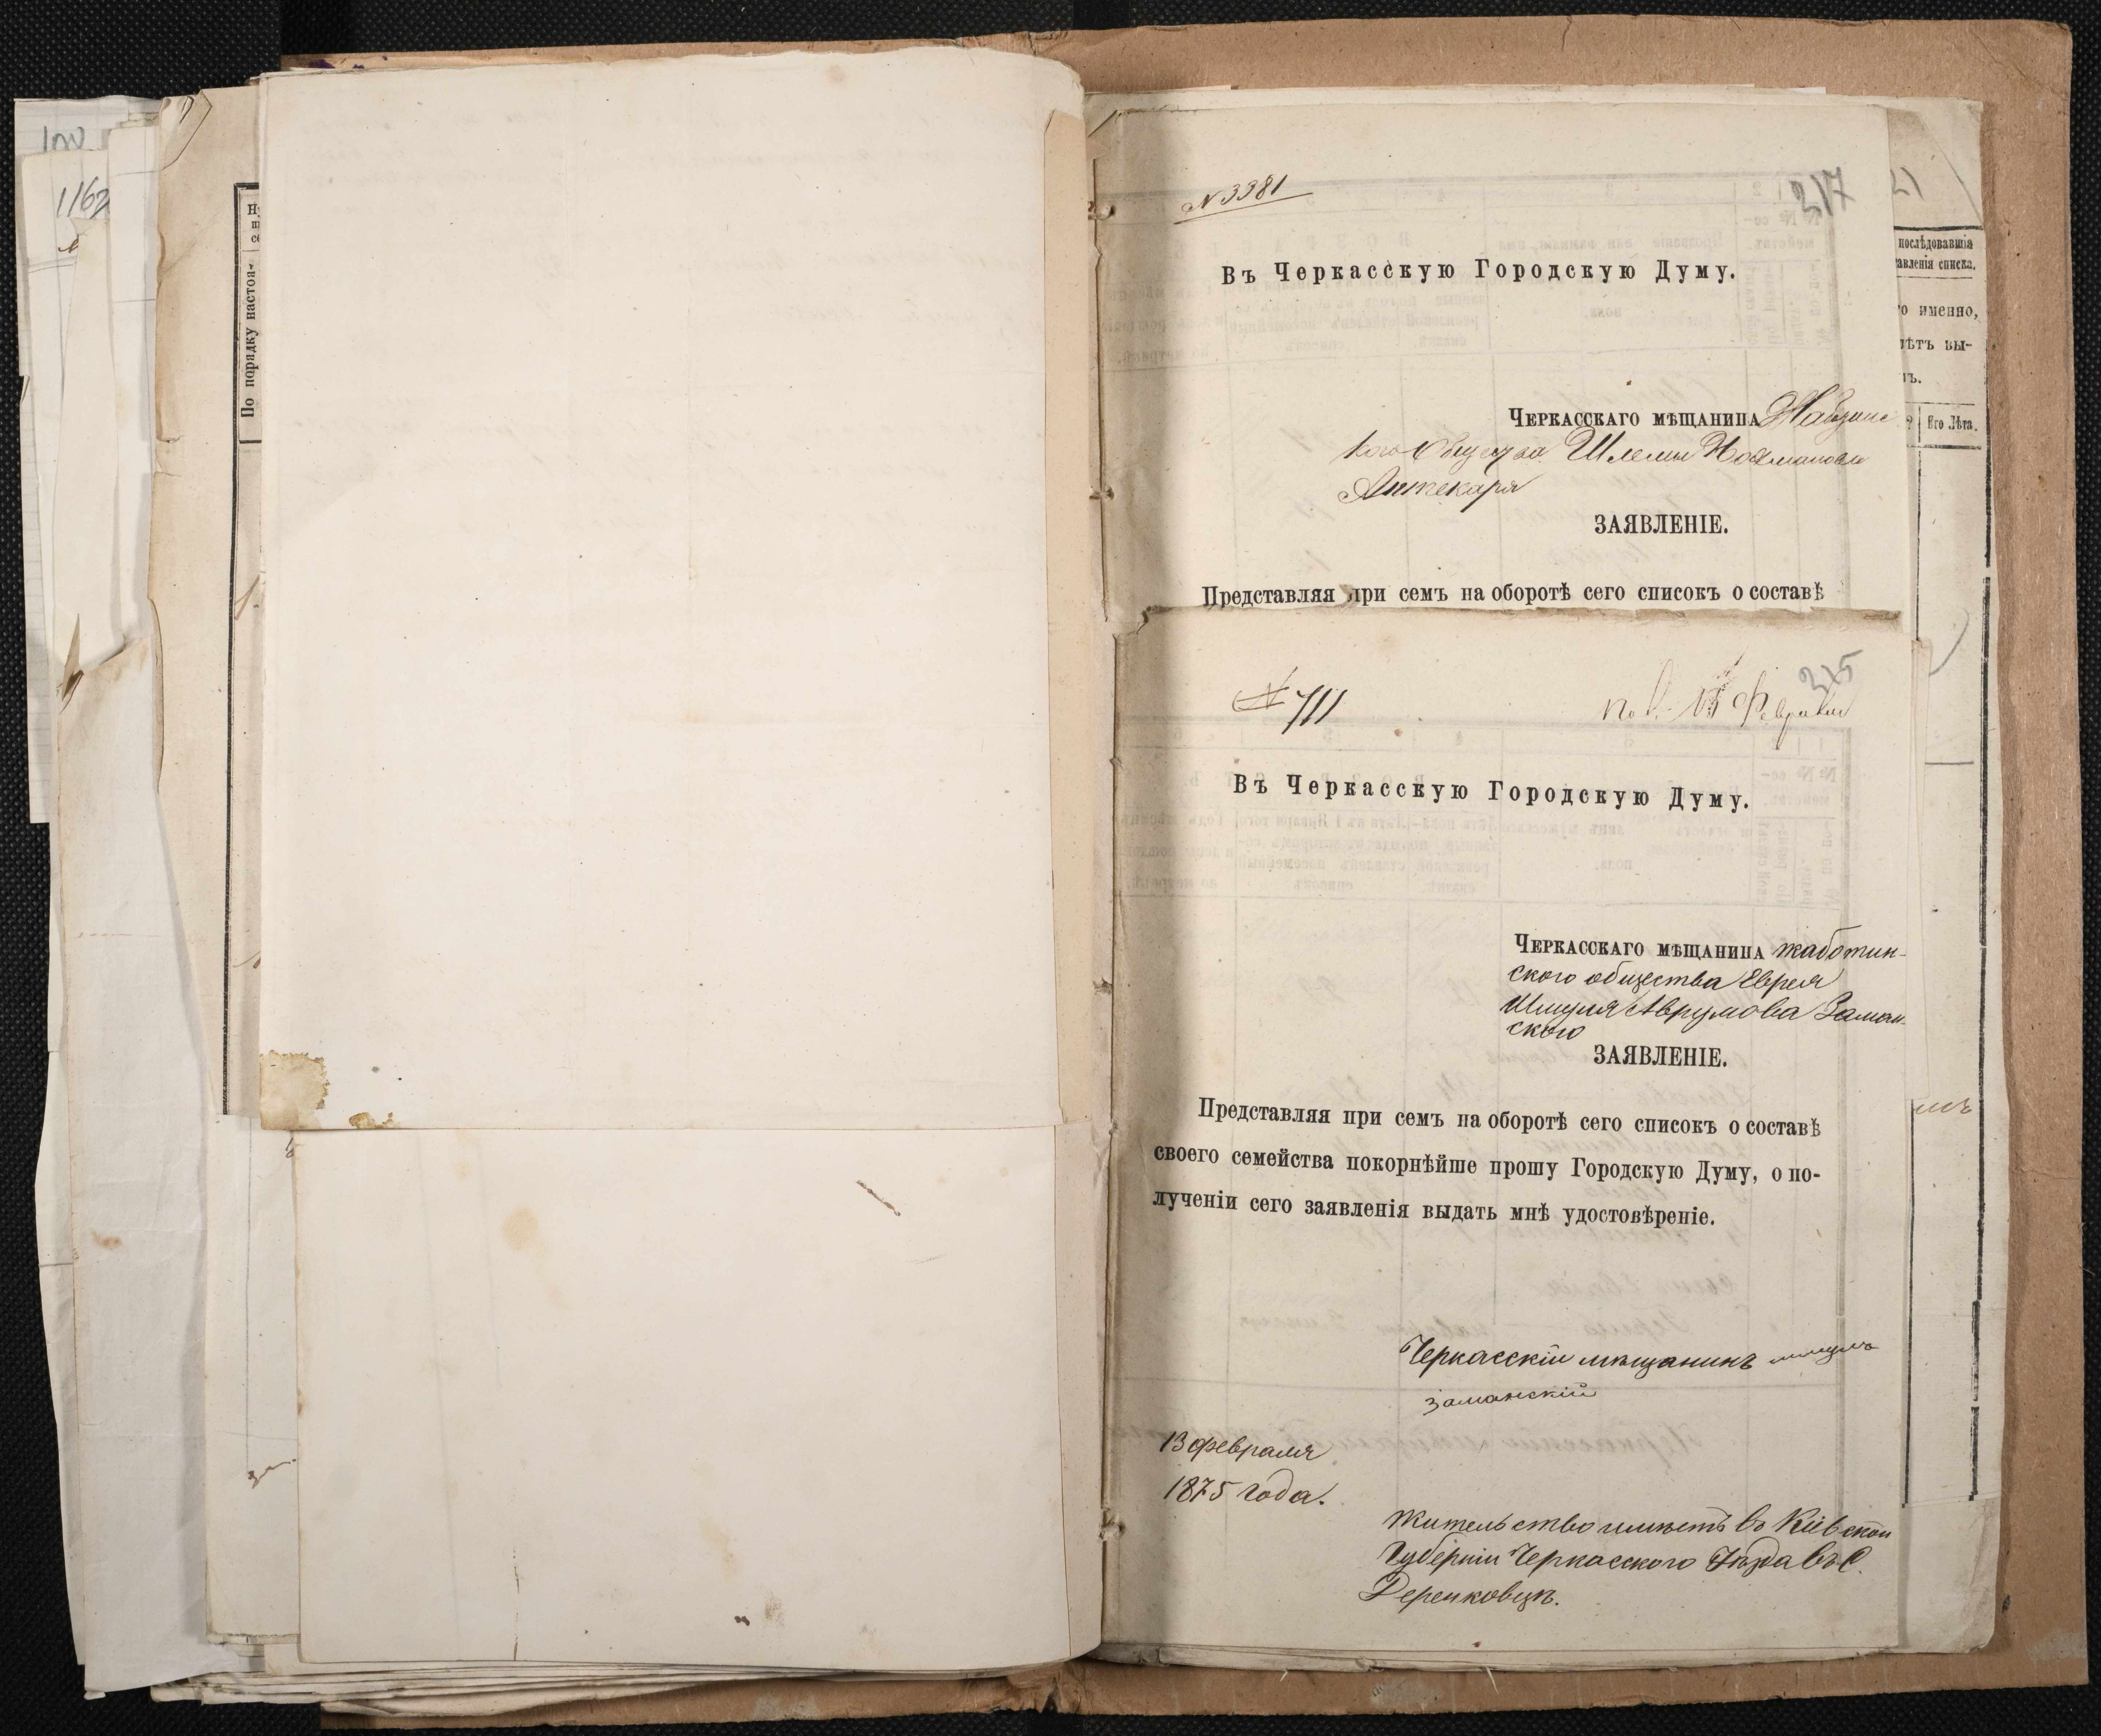 100
1162
По порядку настоя-
№ 3381
217
Въ Черкасскую Городскую Думу.
Черкасскаго мѣщанина
кого общества Шлемы Нохманова
Аптекаря
ЗАЯВЛЕНІЕ.
Представляя при семъ на оборотѣ сего списокъ о составѣ
№ 711
215
13 Февраля
Въ Черкасскую Городскую Думу.
Черкасскаго мѣщанина жаботин-
ского общества Еврея
Шмуля Аврумова Заман-
ского
ЗАЯВЛЕНІЕ.
Представляя при семъ на оборотѣ сего списокъ о составѣ
своего семейства покорнѣйше прошу Городскую Думу, о по-
лученіи сего заявленія выдать мнѣ удостовѣреніе.
Черкасскій мѣщанинъ шмуль
заманскій
13 февраля
1875 года.
Жительство имѣетъ въ Кіевской
Губерніи Черкасского Уѣзда въ С.
Деренковцѣ.
послѣдовавшія
авленія списка.
о именно,
ѣтъ вы-
ъ.
Его Лѣта.